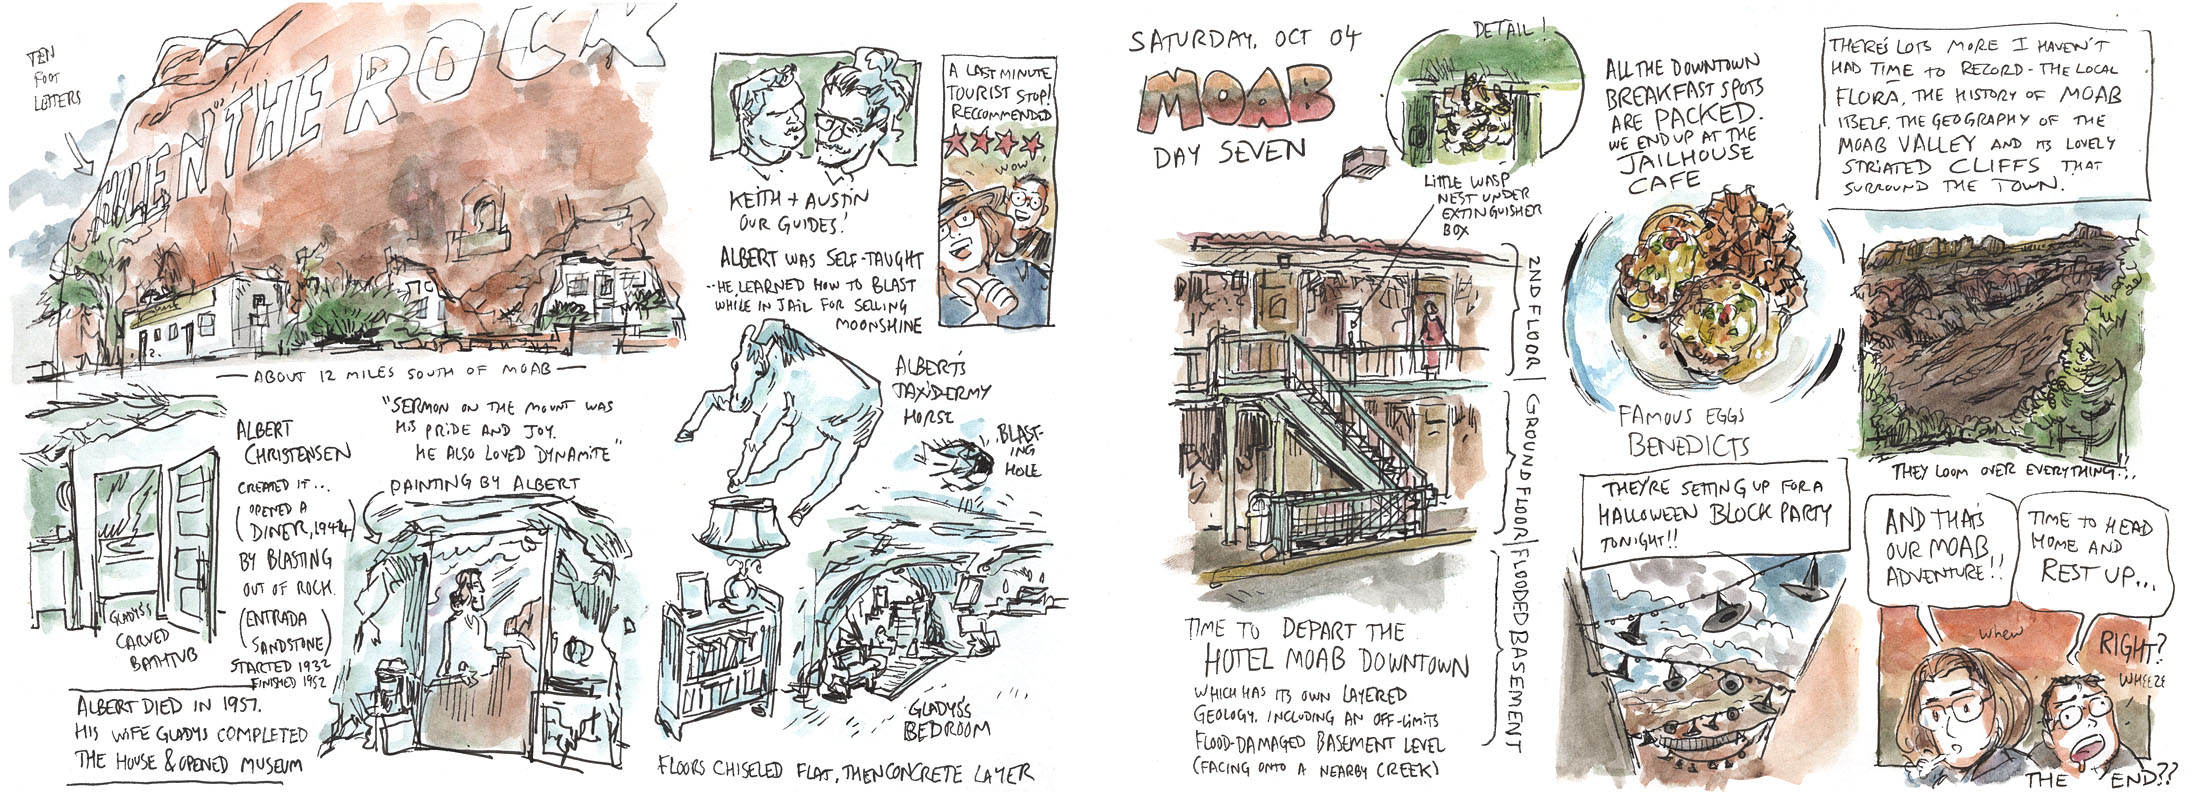 TEN
FOOT
LETTERS
HOLE N" THE ROCK
ABOUT 12 MILES SOUTH OF MOAB
A LAST MINUTE
TOURIST STOP!
RECCOMMENDED
WOW!
KEITH + AUSTIN
OUR GUIDES!
ALBERT WAS SELF-TAUGHT
--HE LEARNED HOW TO BLAST
WHILE IN JAIL FOR SELLING
MOONSHINE
ALBERT'S
TAXIDERMY
HORSE
BLAST-
ING
HOLE
ALBERT
CHRISTENSEN
CREATED IT...
(OPENED A
DINER, 1944)
BY BLASTING
OUT OF ROCK.
(ENTRADA
SANDSTONE)
STARTED 1932
FINISHED 1952
"SERMON ON THE MOUNT WAS
HIS PRIDE AND JOY.
HE ALSO LOVED DYNAMITE"
PAINTING BY ALBERT
GLADYS'S
CARVED
BATHTUB
ALBERT DIED IN 1957.
HIS WIFE GLADYS COMPLETED
THE HOUSE & OPENED MUSEUM
GLADYS'S
BEDROOM
FLOORS CHISELED FLAT, THEN CONCRETE LAYER
SATURDAY, OCT 04
MOAB
DAY SEVEN
DETAIL!
LITTLE WASP
NEST UNDER
EXTINGUISHER
BOX
2ND FLOOR
GROUND FLOOR
FLOODED BASEMENT
TIME TO DEPART THE
HOTEL MOAB DOWNTOWN
WHICH HAS ITS OWN LAYERED
GEOLOGY. INCLUDING AN OFF-LIMITS
FLOOD-DAMAGED BASEMENT LEVEL
(FACING ONTO A NEARBY CREEK)
ALL THE DOWNTOWN
BREAKFAST SPOTS
ARE PACKED.
WE END UP AT THE
JAILHOUSE
CAFE
FAMOUS EGGS
BENEDICTS
THERE'S LOTS MORE I HAVEN'T
HAD TIME TO RECORD - THE LOCAL
FLORA, THE HISTORY OF MOAB
ITSELF, THE GEOGRAPHY OF THE
MOAB VALLEY AND ITS LOVELY
STRIATED CLIFFS THAT
SURROUND THE TOWN.
THEY LOOM OVER EVERYTHING...
THEY'RE SETTING UP FOR A
HALLOWEEN BLOCK PARTY
TONIGHT!!
AND THAT'S
OUR MOAB
ADVENTURE!!
TIME TO HEAD
HOME AND
REST UP...
whew
RIGHT?
WHEEZE
THE END??